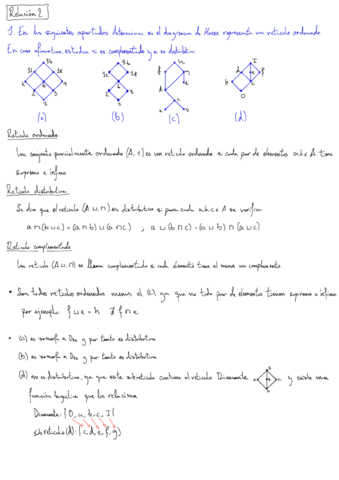 Relación 2
1. En los siguientes apartados determinar si el diagrama de Hasse representa un retículo ordenado.
En caso afirmativo, estudia si es complementado y si es distributivo
36
12 18
6
2 3
1
(a) (b) (c) (d)
Retículo ordenado:
Un conjunto parcialmente ordenado (A, ≤) es un retículo ordenado si cada par de elementos a,b ∈ A tiene
supremo e ínfimo
Retículo distributivo:
Se dice que el retículo (A ⊔ ⊓) es distributivo si para cada a,b,c ∈ A se verifica
a ⊓ (b ⊔ c) = (a ⊓ b) ⊔ (a ⊓ c) , a ⊔ (b ⊓ c) = (a ⊔ b) ⊓ (a ⊔ c)
Retículo complementado:
Un retículo (A ⊔ ⊓) se llama complementado si cada elemento tiene al menos un complemento
• Son todos retículos ordenados menos el (c) ya que no todo par de elementos tienen supremo e ínfimo
por ejemplo: f ⊔ e = h ∄ f ⊓ e
• (a) es isomorfo a D36 y por tanto es distributivo
(b) es isomorfo a y por tanto es distributivo
(d) no es distributivo, ya que este subretículo contiene al retículo Diamante y existe una
función biyectiva que los relaciona
Diamante: {0, a, b, c, I}
subretículo(d): {c, d, e, f, g}